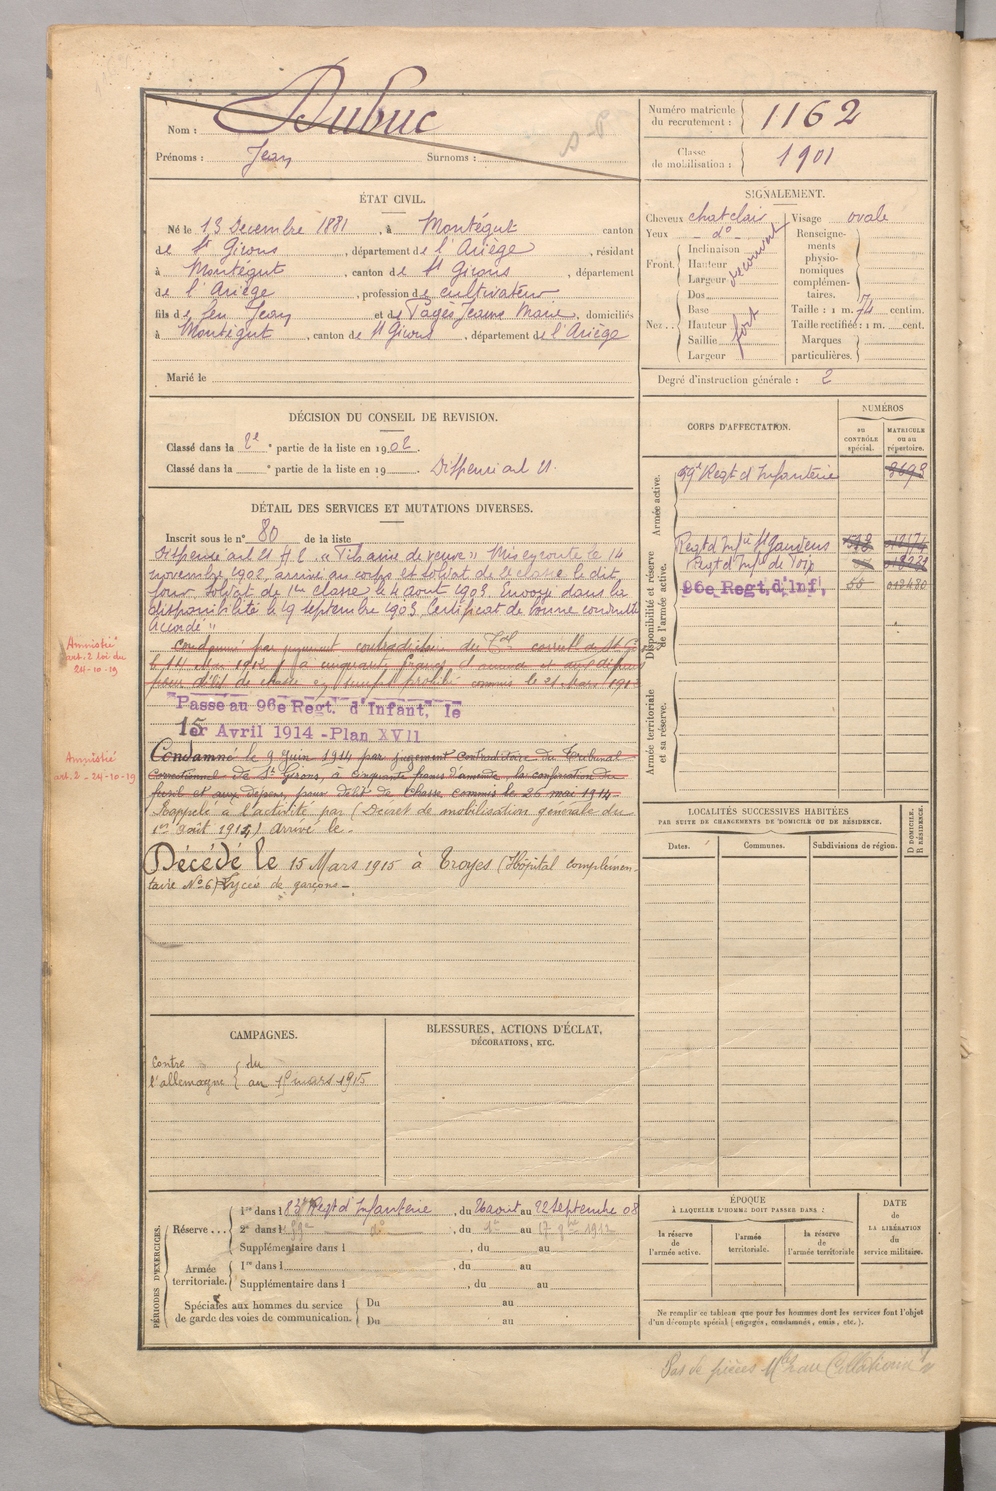 Nom : Dubuc
Prénoms : Jean Surnoms :
Numéro matricule du recrutement : 1162
Classe de mobilisation : 1901
ÉTAT CIVIL.
Né le 13 Decembre 1881, à Montégut canton
de St Girons, département de l'Ariège, résidant
à Montégut, canton de St Girons, département
de l'Ariège, profession de cultivateur
fils de feu Jean et de Pagès Jeanne Marie, domiciliés
à Montégut, canton de St Girons, département de l'Ariège
Marié le
SIGNALEMENT.
Cheveux chat clair Visage ovale
Yeux do Renseigne-
ments
physio-
nomiques
complémen-
taires.
Front. Inclinaison
Hauteur
Largeur
découvert
Nez.. Dos
Base
Hauteur
Saillie
Largeur
fort
Taille : 1 m. 74 centim.
Taille rectifiée : 1 m. cent.
Marques
particulières.
Degré d'instruction générale : 2
DÉCISION DU CONSEIL DE REVISION.
Classé dans la 2e partie de la liste en 1902.
Classé dans la e partie de la liste en 19 . Dispensé art 21.
DÉTAIL DES SERVICES ET MUTATIONS DIVERSES.
Inscrit sous le n° 80 de la liste
Dispensé art 21 "Fils ainé de veuve" Mis en route le 14
novembre 1902, arrivé au corps et soldat de 2e classe le dit
jour. Soldat de 1re classe le 4 aout 1903. Envoyé dans la
disponibilité le 19 septembre 1903. Certificat de bonne conduite
Accordé "
Amnistié
art. 2 loi du
24-10-19
Condamné par jugement contradictoire du Tal correl de St G
le 14 Mai 1912, à cinquante francs d'amende et aux dépens
pour délit de chasse en temps prohibé commis le 21 Mars 1912
Passé au 96e Regt. d'Infant, le
15
er Avril 1914 - Plan XVII
Amnistié
art. 2 - 24-10-19
Condamné le 9 Juin 1914 par jugement contradictoire du Tribunal
Correctionnel de St Girons, à cinquante francs d'amende, la confiscation du
fusil et aux dépens, pour délit de chasse commis le 26 mai 1914.
Rappelé à l'activité par (Décret de mobilisation générale du
1er août 1914) arrivé le
Décédé le 15 Mars 1915 à Troyes (Hôpital complémen-
taire No 6) Lycée de garçons
CORPS D'AFFECTATION.
NUMÉROS
AU CONTRÔLE spécial.
MATRICULE ou au répertoire.
Armée active.
59e Regt d'Infanterie
Disponibilité et réserve de l'armée active.
Regt d'Infie St Gaudens
Regt d'Infie de Foix
96e Regt, d'Inf,
Armée territoriale et sa réserve.
LOCALITÉS SUCCESSIVES HABITÉES
PAR SUITE DE CHANGEMENTS DE DOMICILE OU DE RÉSIDENCE.
Dates. Communes. Subdivisions de région.
D DOMICILE.
R RÉSIDENCE.
CAMPAGNES.
Contre du
l'allemagne au 15 mars 1915
BLESSURES, ACTIONS D'ÉCLAT,
DÉCORATIONS, ETC.
PÉRIODES D'EXERCICES.
Réserve... 1re dans l 83e Regt d'Infanterie, du 26 aout au 22 septembre 08
2e dans l 59e do, du 1er au 17 9bre 1912
Supplémentaire dans l , du au
Armée territoriale. 1re dans l , du au
Supplémentaire dans l , du au
Spéciales aux hommes du service
de garde des voies de communication. Du au
Du au
ÉPOQUE
À LAQUELLE L'HOMME DOIT PASSER DANS :
la réserve de l'armée active.
l'armée territoriale.
la réserve de l'armée territoriale
DATE
de
LA LIBÉRATION
du
service militaire.
Ne remplir ce tableau que pour les hommes dont les services font l'objet
d'un décompte spécial (engagés, condamnés, omis, etc.).
Pas de pièces